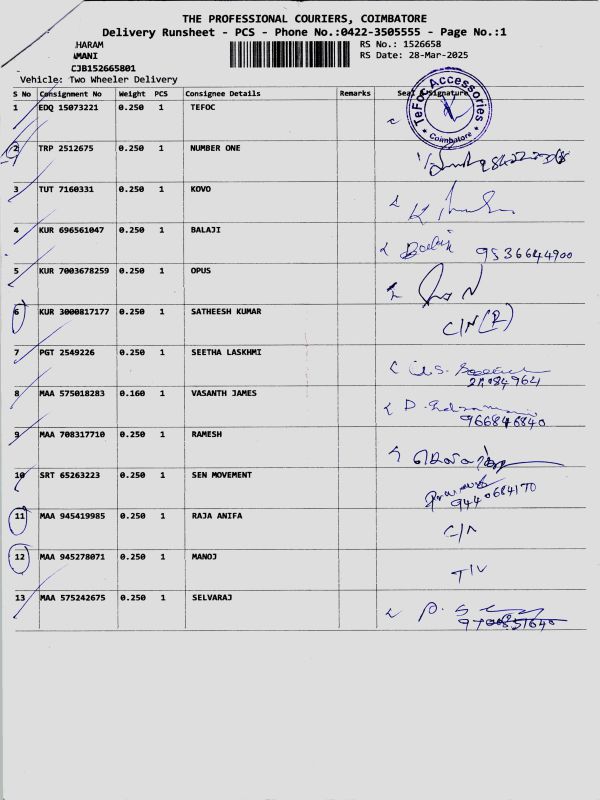 THE PROFESSIONAL COURIERS, COIMBATORE
Delivery Runsheet - PCS - Phone No.:0422-3505555 - Page No.:1
HARAM
RS No.: 1526658
AMANI
RS Date: 28-Mar-2025
CJB152665801
Vehicle: Two Wheeler Delivery
S No Consignment No Weight PCS Consignee Details Remarks Seal Signature
TeFoc Accessories
* Coimbatore *
1 EDQ 15073221 0.250 1 TEFOC
2 TRP 2512675 0.250 1 NUMBER ONE
3 TUT 7160331 0.250 1 KOVO
4 KUR 696561047 0.250 1 BALAJI
Balaji 9536644900
5 KUR 7003678259 0.250 1 OPUS
6 KUR 3000817177 0.250 1 SATHEESH KUMAR
C/N (R)
7 PGT 2549226 0.250 1 SEETHA LASKHMI
8 MAA 575018283 0.160 1 VASANTH JAMES
9668446840
9 MAA 708317710 0.250 1 RAMESH
10 SRT 65263223 0.250 1 SEN MOVEMENT
9440684170
11 MAA 945419985 0.250 1 RAJA ANIFA
C/N
12 MAA 945278071 0.250 1 MANOJ
13 MAA 575242675 0.250 1 SELVARAJ